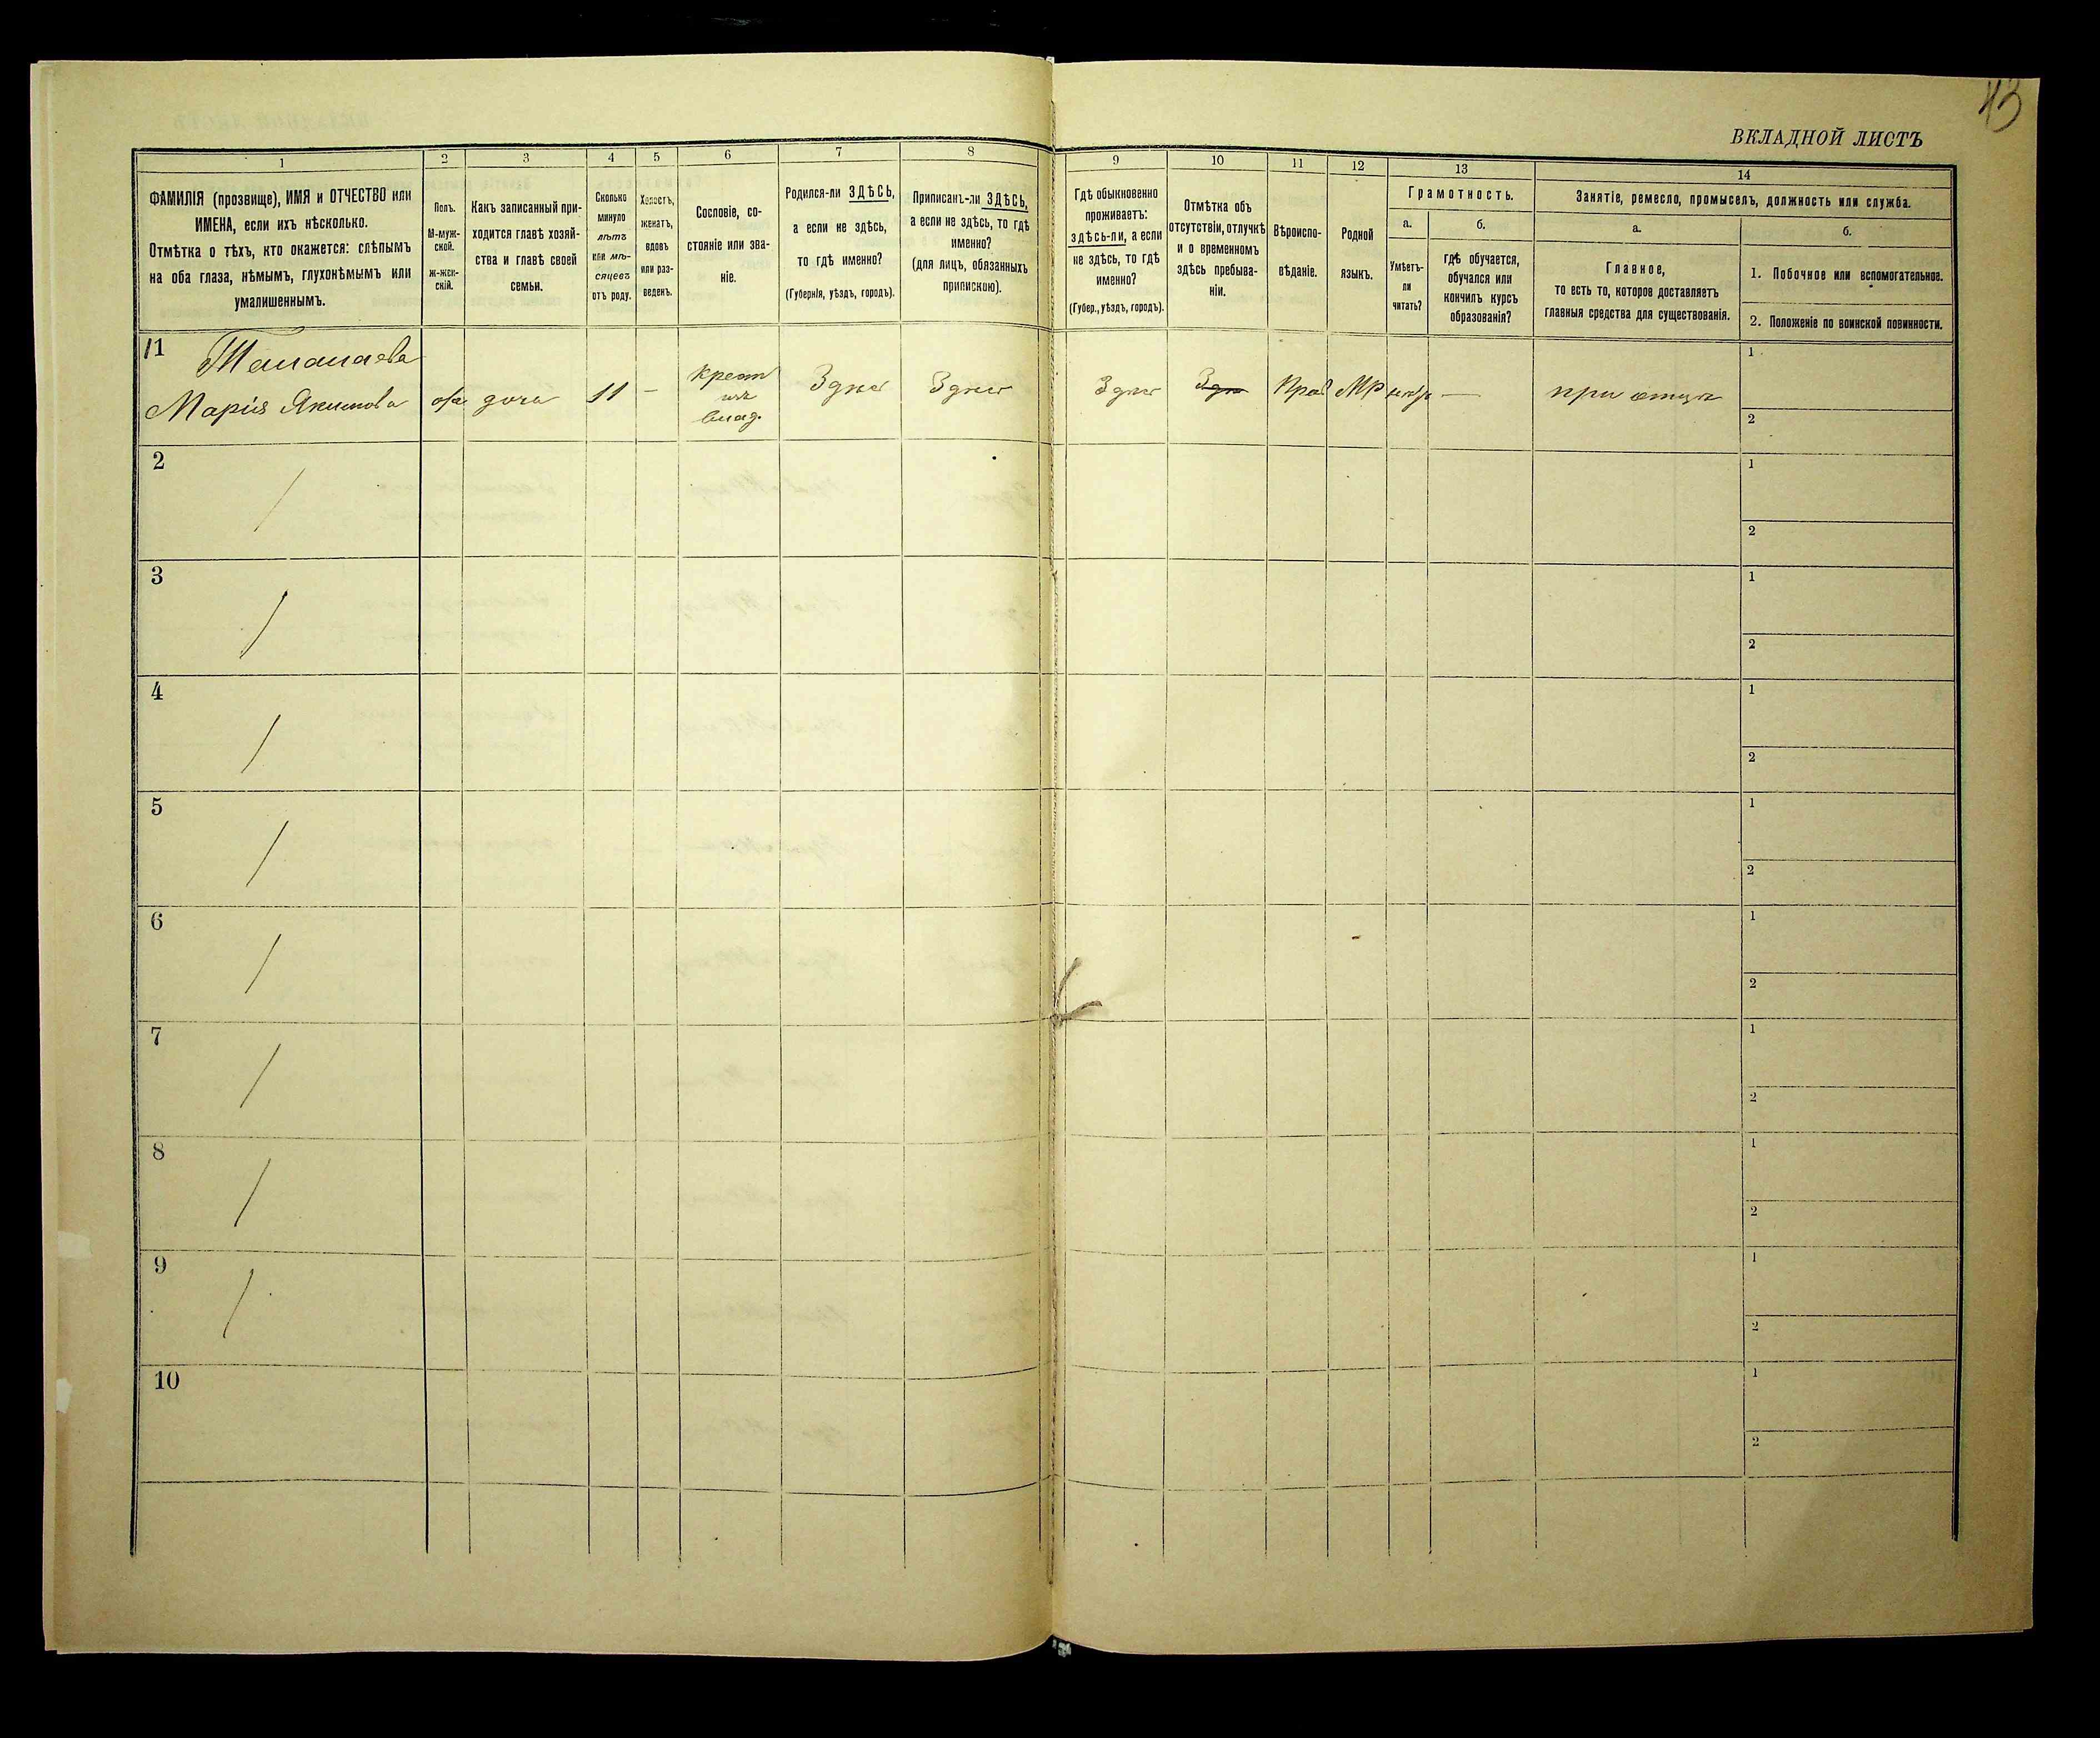 43
ВКЛАДНОЙ ЛИСТЪ
1 2 3 4 5 6 7 8 9 10 11 12 13 14
ФАМИЛІЯ (прозвище), ИМЯ и ОТЧЕСТВО или
ИМЕНА, если ихъ нѣсколько.
Отмѣтка о тѣхъ, кто окажется: слѣпымъ
на оба глаза, нѣмымъ, глухонѣмымъ или
умалишеннымъ.
Полъ.
М-муж-
ской.
Ж-жен-
скій.
Какъ записанный при-
ходится главѣ хозяй-
ства и главѣ своей
семьи.
Сколько
минуло
лѣтъ
или мѣ-
сяцевъ
отъ роду.
Холостъ,
женатъ,
вдовъ
или раз-
веденъ.
Сословіе, со-
стояніе или зва-
ніе.
Родился-ли ЗДѢСЬ,
а если не здѣсь,
то гдѣ именно?
(Губернія, уѣздъ, городъ).
Приписанъ-ли ЗДѢСЬ,
а если не здѣсь, то гдѣ
именно?
(для лицъ, обязанныхъ
припискою).
Гдѣ обыкновенно
проживаетъ:
здѣсь-ли, а если
не здѣсь, то гдѣ
именно?
(Губер., уѣздъ, городъ).
Отмѣтка объ
отсутствіи, отлучкѣ
и о временномъ
здѣсь пребыва-
ніи.
Вѣроиспо-
вѣданіе.
Родной
языкъ.
Грамотность.
а.
Умѣетъ-
ли
читать?
б.
гдѣ обучается,
обучался или
кончилъ курсъ
образованія?
Занятіе, ремесло, промыселъ, должность или служба.
а.
Главное,
то есть то, которое доставляетъ
главныя средства для существованія.
б.
1. Побочное или вспомогательное.
2. Положеніе по воинской повинности.
11
Марія Якимова
дочь 11 —
крест
изъ
влад.
Здесь Здесь Здесь Зде Прав МР нетъ — при отце
1
2
2
1
2
3
1
2
4
1
2
5
1
2
6
1
2
7
1
2
8
1
2
9
1
2
10
1
2